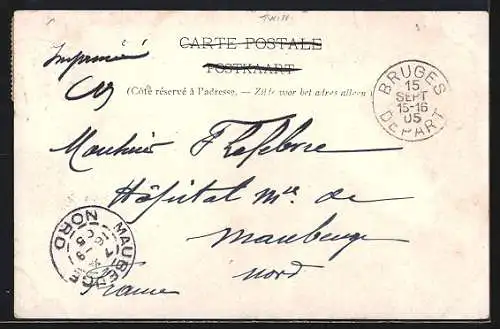 CARTE POSTALE
POSTKAART
(Côté réservé à l'adresse. — Zijde voor het adres alleen
Imprimé
BRUGES
15
SEPT
15-16
05
DEPART
Monsieur F Lefebvre
Hôpital Mre de
Maubeuge
Nord
France
MAUBEUGE
NORD
16-9
05